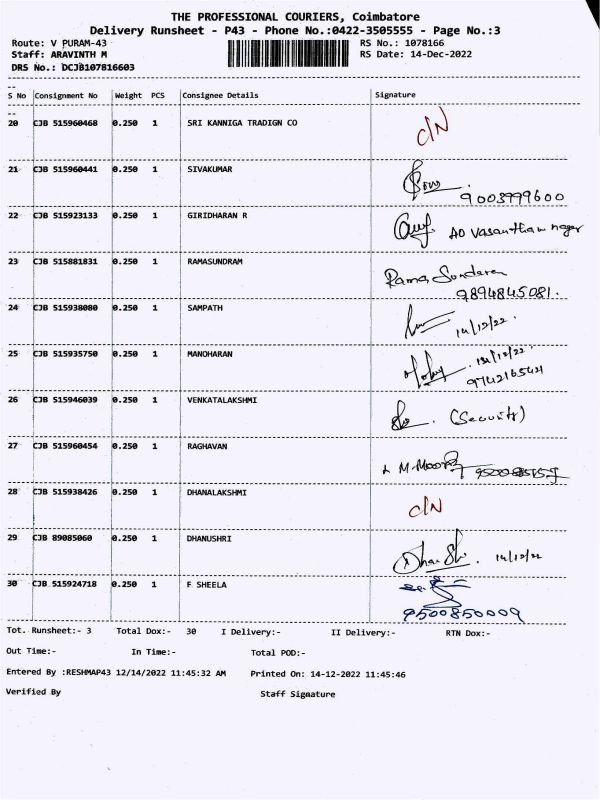 THE PROFESSIONAL COURIERS, Coimbatore
Delivery Runsheet - P43 - Phone No.:0422-3505555 - Page No.:3
Route: V PURAM-43 RS No.: 1078166
Staff: ARAVINTH M RS Date: 14-Dec-2022
DRS No.: DCJB107816603
S No Consignment No Weight PCS Consignee Details Signature
20 CJB 515960468 0.250 1 SRI KANNIGA TRADIGN CO C/N
21 CJB 515960441 0.250 1 SIVAKUMAR
9003999600
22 CJB 515923133 0.250 1 GIRIDHARAN R AO Vasantham nager
23 CJB 515881831 0.250 1 RAMASUNDRAM Rama Sunderan
9894845081.
24 CJB 515938080 0.250 1 SAMPATH 14/12/22.
25 CJB 515935750 0.250 1 MANOHARAN
9742165421
26 CJB 515946039 0.250 1 VENKATALAKSHMI (Security)
27 CJB 515960454 0.250 1 RAGHAVAN
28 CJB 515938426 0.250 1 DHANALAKSHMI C/N
29 CJB 89085060 0.250 1 DHANUSHRI 14/12/22
30 CJB 515924718 0.250 1 F SHEELA
9500850009
Tot. Runsheet:- 3 Total Dox:- 30 I Delivery:- II Delivery:- RTN Dox:-
Out Time:- In Time:- Total POD:-
Entered By :RESHMAP43 12/14/2022 11:45:32 AM Printed On: 14-12-2022 11:45:46
Verified By Staff Signature